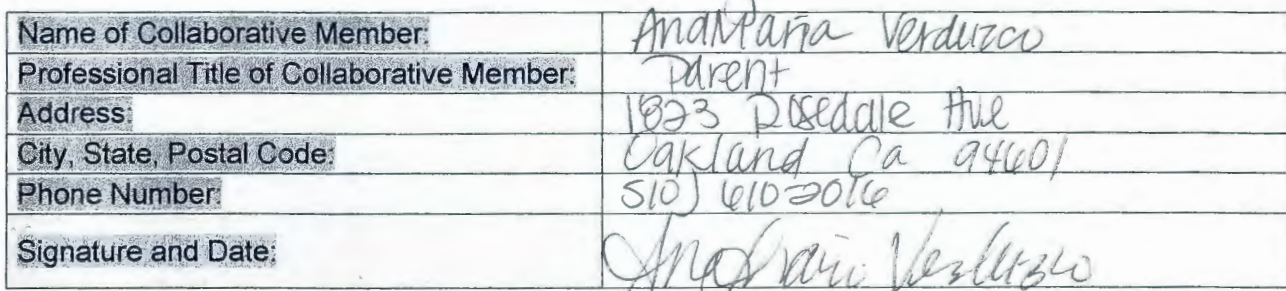 Name of Collaborative Member: AnaMaria Verduzco
Professional Title of Collaborative Member: Parent
Address: 1823 Rosedale Ave
City, State, Postal Code: Oakland Ca 94601
Phone Number: 510) 610-2016
Signature and Date: AnaMaria Verduzco